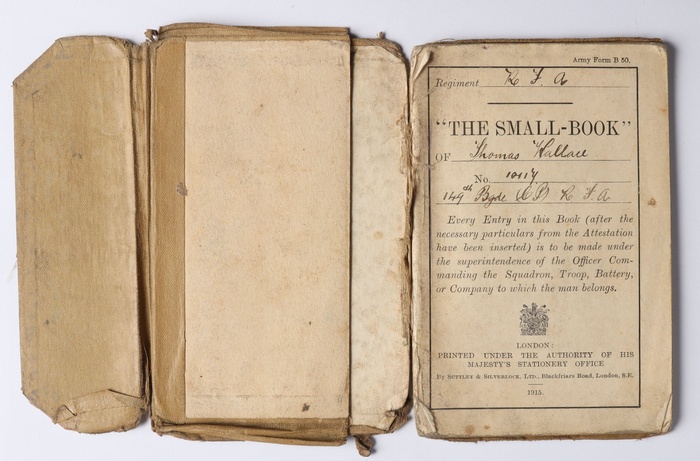 Army Form B 50.
Regiment R F A
"THE SMALL-BOOK"
OF Thomas Wallace
No.
149th Bgde (CP) R F A
Every Entry in this Book (after the
necessary particulars from the Attestation
have been inserted) is to be made under
the superintendence of the Officer Com-
manding the Squadron, Troop, Battery,
or Company to which the man belongs.
LONDON:
PRINTED UNDER THE AUTHORITY OF HIS
MAJESTY'S STATIONERY OFFICE
By SUTTLEY & SILVERLOCK, LTD., Blackfriars Road, London, S.E.
1915.